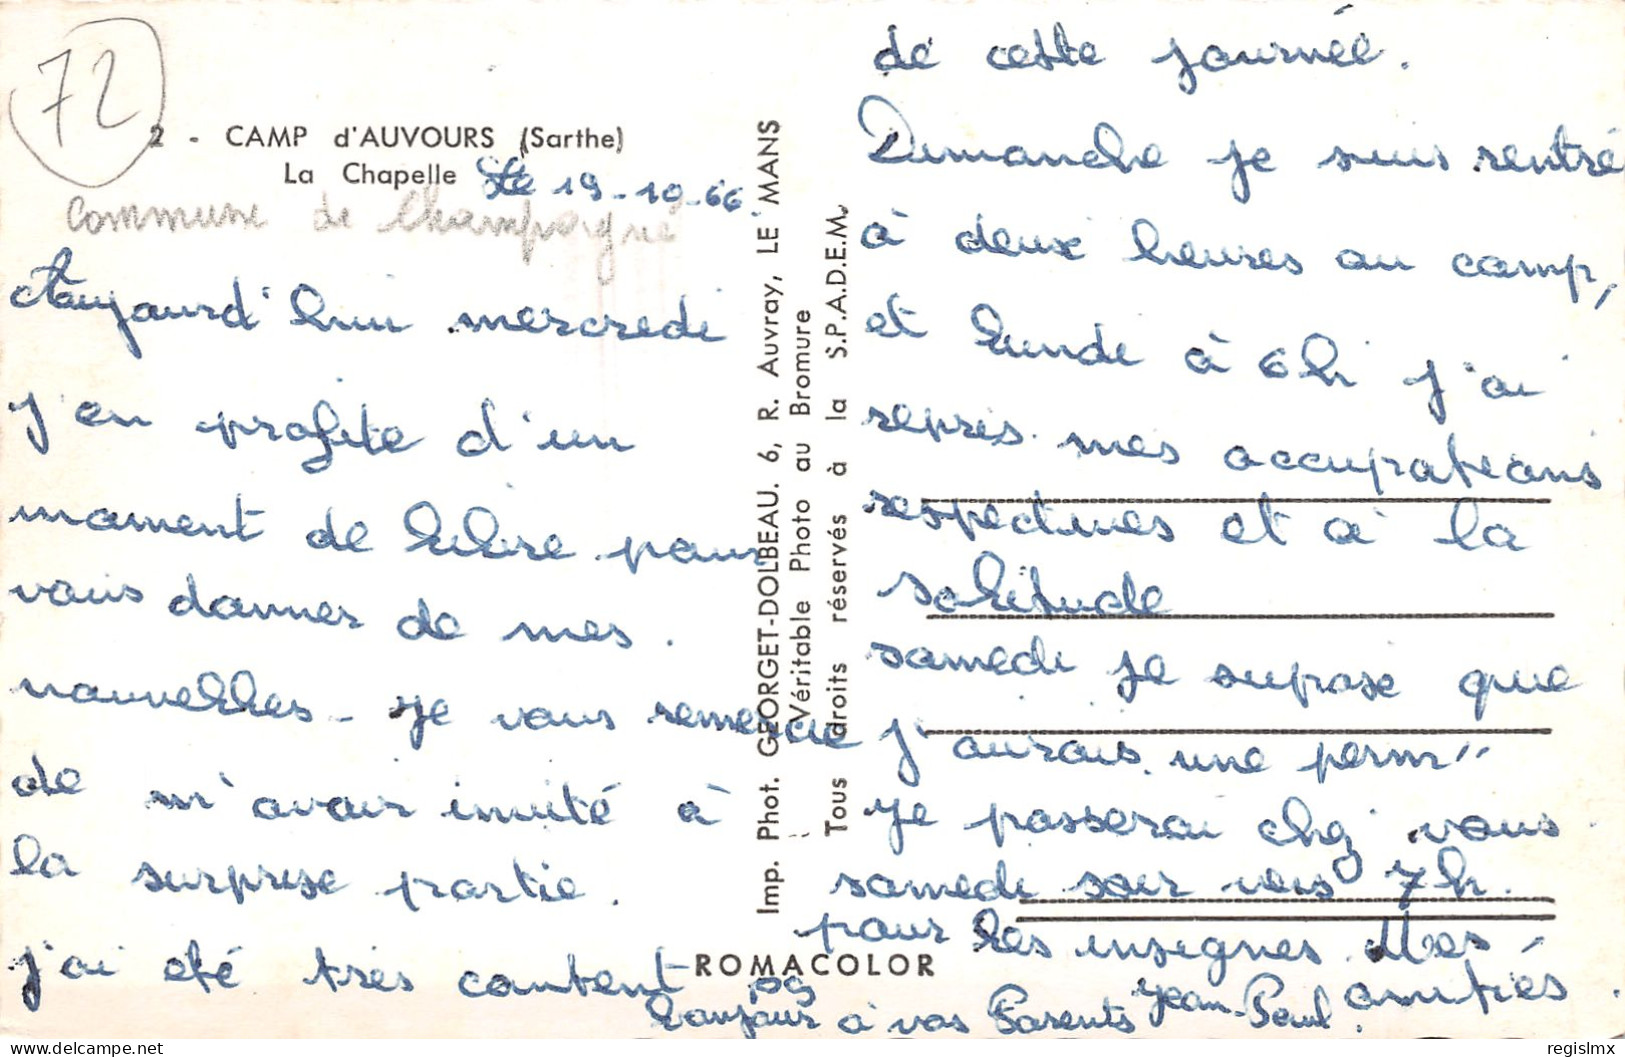 72
2 - CAMP d'AUVOURS (Sarthe)
La Chapelle
Le 19-10-66.
Commune de Champagné
Aujourd'hui mercredi
j'en profite d'un
moment de libre pour
vous donner de mes.
nouvelles - Je vous remercie
de m'avoir invité à
la surprise partie.
j'ai été très content
de cette journée.
Dimanche je suis rentré
à deux heures au camp,
et lundi à 6h j'ai
repris mes occupations
respectives et à la
solitude
samedi je supose que
j'aurais une perm"
Je passerai chez vous
samedi soir vers 7h.
pour les insignes. Mes
amitiés.
Jean-Paul.
Bonjour à vos Parents
Imp. Phot. GEORGET-DOLBEAU. 6, R. Auvray, LE MANS
Véritable Photo au Bromure
Tous droits réservés à la S.P.A.D.E.M.
ROMACOLOR
regislmx